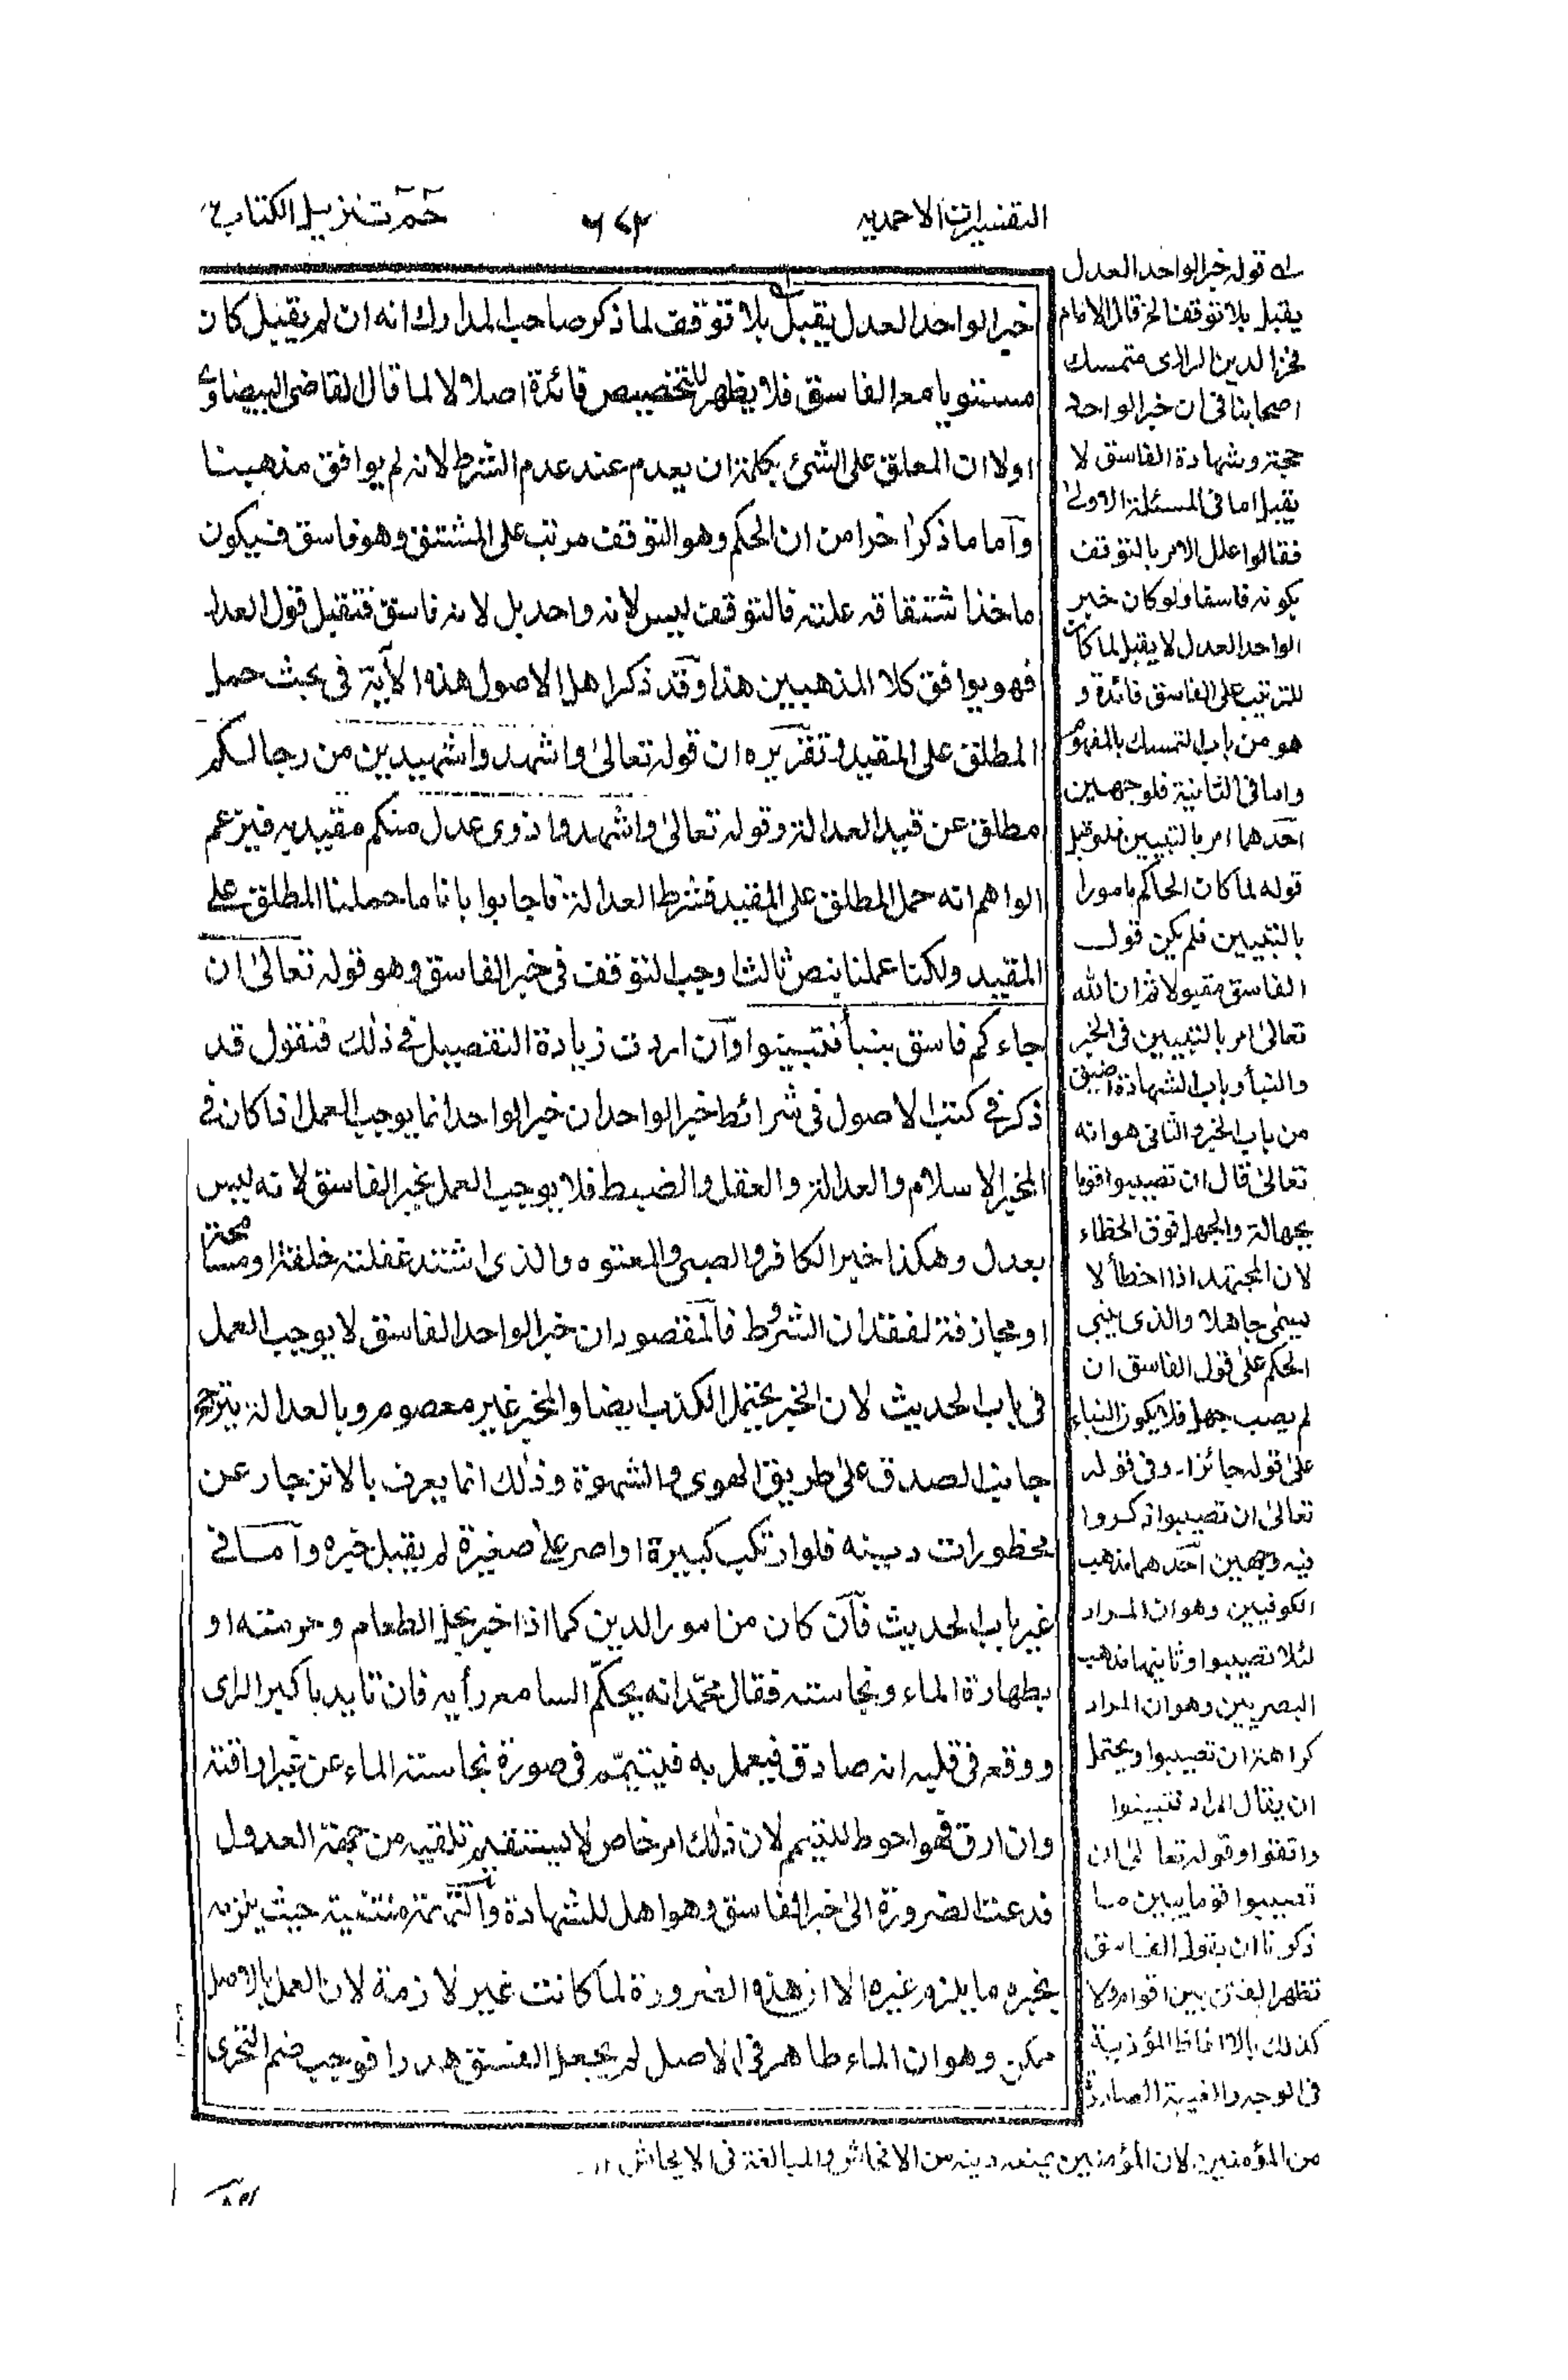 التفسيرات الاحمديه
حٰمٓ تنزيل الكتاب
خبر الواحد العدل يقبل بلا توقف لما ذكر صاحب المدارك انه ان لم يقبل كان
مستويا مع الفاسق فلا يظهر للتخصيص فائدة اصلا لا لما قال القاضى البيضاوى
اولا ان المعلق على الشئ بكلمة ان يعدم عند عدم الشرط لانه لم يوافق مذهبنا
وآما ما ذكر اخرا من ان الحكم وهو التوقف مرتب على المشتق وهو فاسق فيكون
ماخذ اشتقاقه علته فالتوقف ليس لانه واحد بل لانه فاسق فتقبل قول العدل
فهو يوافق كلا المذهبين هذا وقد ذكر اهل الاصول هذه الآية فى بحث حمل
المطلق على المقيد وتقريره ان قوله تعالىٰ واشهدوا شهيدين من رجالكم
مطلق عن قيد العدالة وقوله تعالىٰ واشهدوا ذوى عدل منكم مقيد به فيزعم
الواهم انه حمل المطلق على المقيد فشرط العدالة فاجابوا بانا ما حملنا المطلق على
المقيد ولكنا عملنا بنص ثالث اوجب التوقف فى خبر الفاسق وهو قوله تعالىٰ ان
جاءكم فاسق بنبأ فتبينوا وآن اردت زيادة التفصيل فى ذٰلك فنقول قد
ذكر فى كتب الاصول فى شرائط خبر الواحد ان خبر الواحد انما يوجب العمل اذا كان فى
المخبر الاسلام والعدالة والعقل والضبط فلا يوجب العمل بخبر الفاسق لانه ليس
بعدل وهكذا خبر الكافر والصبى والمعتوه والذى اشتد غفلته خلقة او مسامحة
او مجازفة لفقدان الشروط فالمقصود ان خبر الواحد الفاسق لا يوجب العمل
فى باب الحديث لان الخبر يحتمل الكذب ايضا والمخبر غير معصوم وبالعدالة يترجح
جانب الصدق على طريق الهوى والشهوة وذٰلك انما يعرف بالانزجار عن
محظورات دينه فلو ارتكب كبيرة او اصر على صغيرة لم يقبل خبره وآما فى
غير باب الحديث فآن كان من امور الدين كما اذا اخبر بحل الطعام وحرمته او
بطهارة الماء ونجاسته فقال محمّد انه يحكّم السامع رأيه فان تايد باكبر الراى
ووقع فى قلبه انه صادق فيعمل به فيتيمّم فى صورة نجاسته الماء عن غير اراقته
وان ارق فهو احوط للتيمم لان ذٰلك امر خاص لا يستقيم تلقيه من جهة العدول
فدعت الضرورة الىٰ خبر الفاسق وهو اهل للشهادة والتهمة منتفية حيث يلزمه
بخبره ما يلزم غيره الا ان هذه الضرورة لما كانت غير لازمة لان العمل بالاصل
ممكن وهو ان الماء طاهر فى الاصل لم يجعل الفسق هدرا فوجب ضم التحرى
له قوله خبر الواحد العدل
يقبل بلا توقف الخ قال الامام
فخر الدين الرازى متمسك
اصحابنا فى ان خبر الواحد
حجة وشهادة الفاسق لا
يقبل اما فى المسئلة الاولىٰ
فقالوا علل الامر بالتوقف
بكونه فاسقا ولو كان خبر
الواحد العدل لا يقبل لما كان
للترتيب على الفاسق فائدة و
هو من باب التمسك بالمفهوم
واما فى الثانية فلوجهين
آحدهما امر بالتبيين فلو قبل
قوله لما كان الحاكم مامورا
بالتبيين فلم يكن قول
الفاسق مقبولا ثم ان الله
تعالىٰ امر بالتبيين فى الخبر
والنبأ وباب الشهادة اضيق
من باب الخبر والثانى هو انه
تعالىٰ قال ان تصيبوا قوما
بجهالة والجهل فوق الخطاء
لان المجتهد اذا اخطأ لا
يسمى جاهلا والذى يبنى
الحكم علىٰ قول الفاسق ان
لم يصب جهل فلا يكون البناء
علىٰ قوله جائزا۔ وفى قوله
تعالىٰ ان تصيبوا ذكروا
فيه وجهين آحدهما مذهب
الكوفيين وهو ان المراد
لئلا تصيبوا وثانيهما مذهب
البصريين وهو ان المراد
كراهة ان تصيبوا ويحتمل
ان يقال المراد تتبينوا
واتقوا وقوله تعالىٰ ان
تصيبوا قوما يبين ما
ذكرنا ان بقول الفاسق
تظهر الفتن بين اقوام ولا
كذلك بالالفاظ المؤذية
فى الوجه والغيبة الصادرة
من المؤمنين لان المؤمنين يمنعه دينه من الافحاش والمبالغة فى الايحاش ۱۲